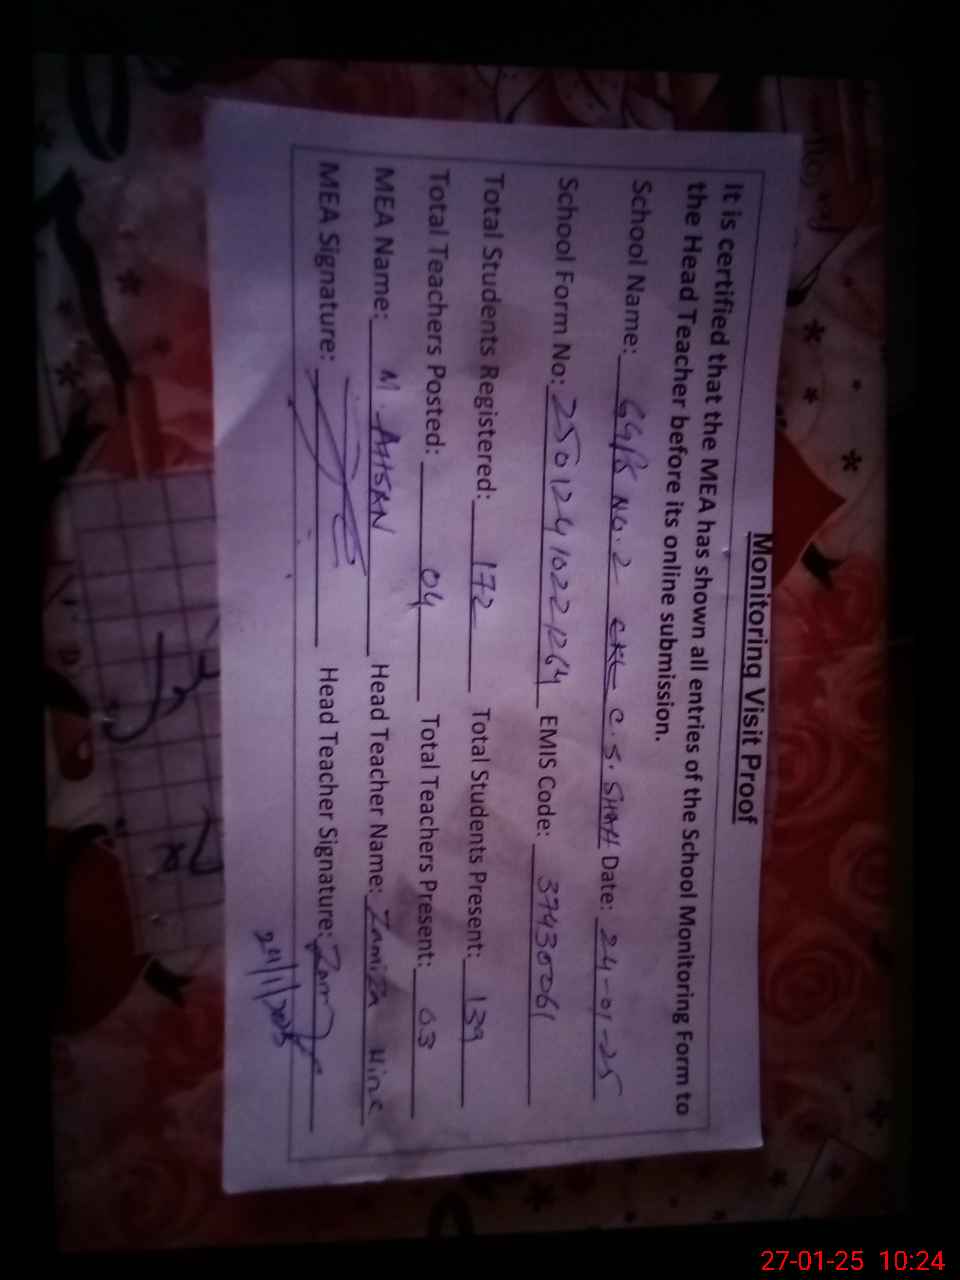 Monitoring Visit Proof
It is certified that the MEA has shown all entries of the School Monitoring Form to
the Head Teacher before its online submission.
School Name: GGPS NO.2 C.S. SHAH Date: 24-01-25
School Form No: 25012410221264 EMIS Code: 37430061
Total Students Registered: 172 Total Students Present: 139
Total Teachers Posted: 04 Total Teachers Present: 03
MEA Name: M AHSAN Head Teacher Name:
MEA Signature: Head Teacher Signature:
24/1/2025
27-01-25 10:24